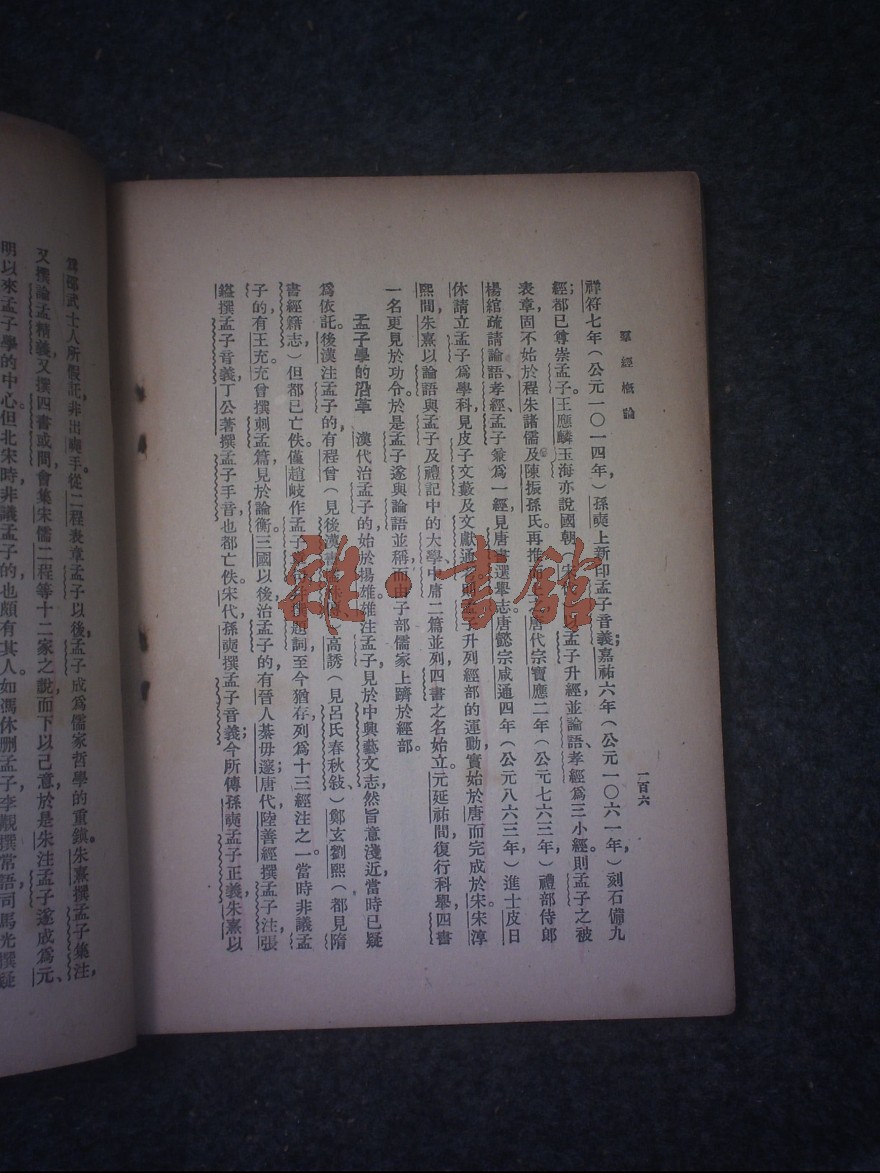 羣經概論
一百六
祥符七年(公元一〇一四年,)孫奭上新印孟子音義;嘉祐六年(公元一〇六一年,)刻石備九
經都已尊崇孟子王應麟玉海亦說國朝孟子升經並論語、孝經爲三小經。則孟子之被
表章固不始於程朱諸儒及陳振孫氏再推唐代宗寶應二年(公元七六三年,)禮部侍郎
楊綰疏請論語、孝經、孟子兼爲一經見唐書選舉志唐懿宗咸通四年(公元八六三年,)進士皮日
休請立孟子爲學科見皮子文藪及文獻通孟子升列經部的運動實始於唐而完成於宋宋淳
熙間朱熹以論語與孟子及禮記中的大學中庸二篇並列四書之名始立。元延祐間復行科舉四書
一名更見於功令於是孟子遂與論語並稱而由子部儒家上躋於經部。
孟子學的沿革 漢代治孟子的始於揚雄雄注孟子見於中興藝文志然旨意淺近當時已疑
爲依託。後漢注孟子的有程曾(見後漢書)高誘(見呂氏春秋敍)鄭玄劉熙(都見隋
書經籍志)但都已亡佚僅趙岐作孟子題詞至今猶存列爲十三經注之一。當時非議孟
子的有王充充曾撰刺孟篇見於論衡。三國以後治孟子的有晉人綦毋邃唐代陸善經撰孟子注張
鎰撰孟子音義丁公著撰孟子手音也都亡佚。宋代孫奭撰孟子音義;今所傳孫奭孟子正義朱熹以
爲邵武士人所假託非出奭手從二程表章孟子以後孟子成爲儒家哲學的重鎭。朱熹撰孟子集注,
又撰論孟精義又撰四書或問會集宋儒二程等十二家之說而下以己意於是朱注孟子遂成爲元、
明以來孟子學的中心但北宋時非議孟子的也頗有其人如馮休刪孟子李覯撰常語司馬光撰疑